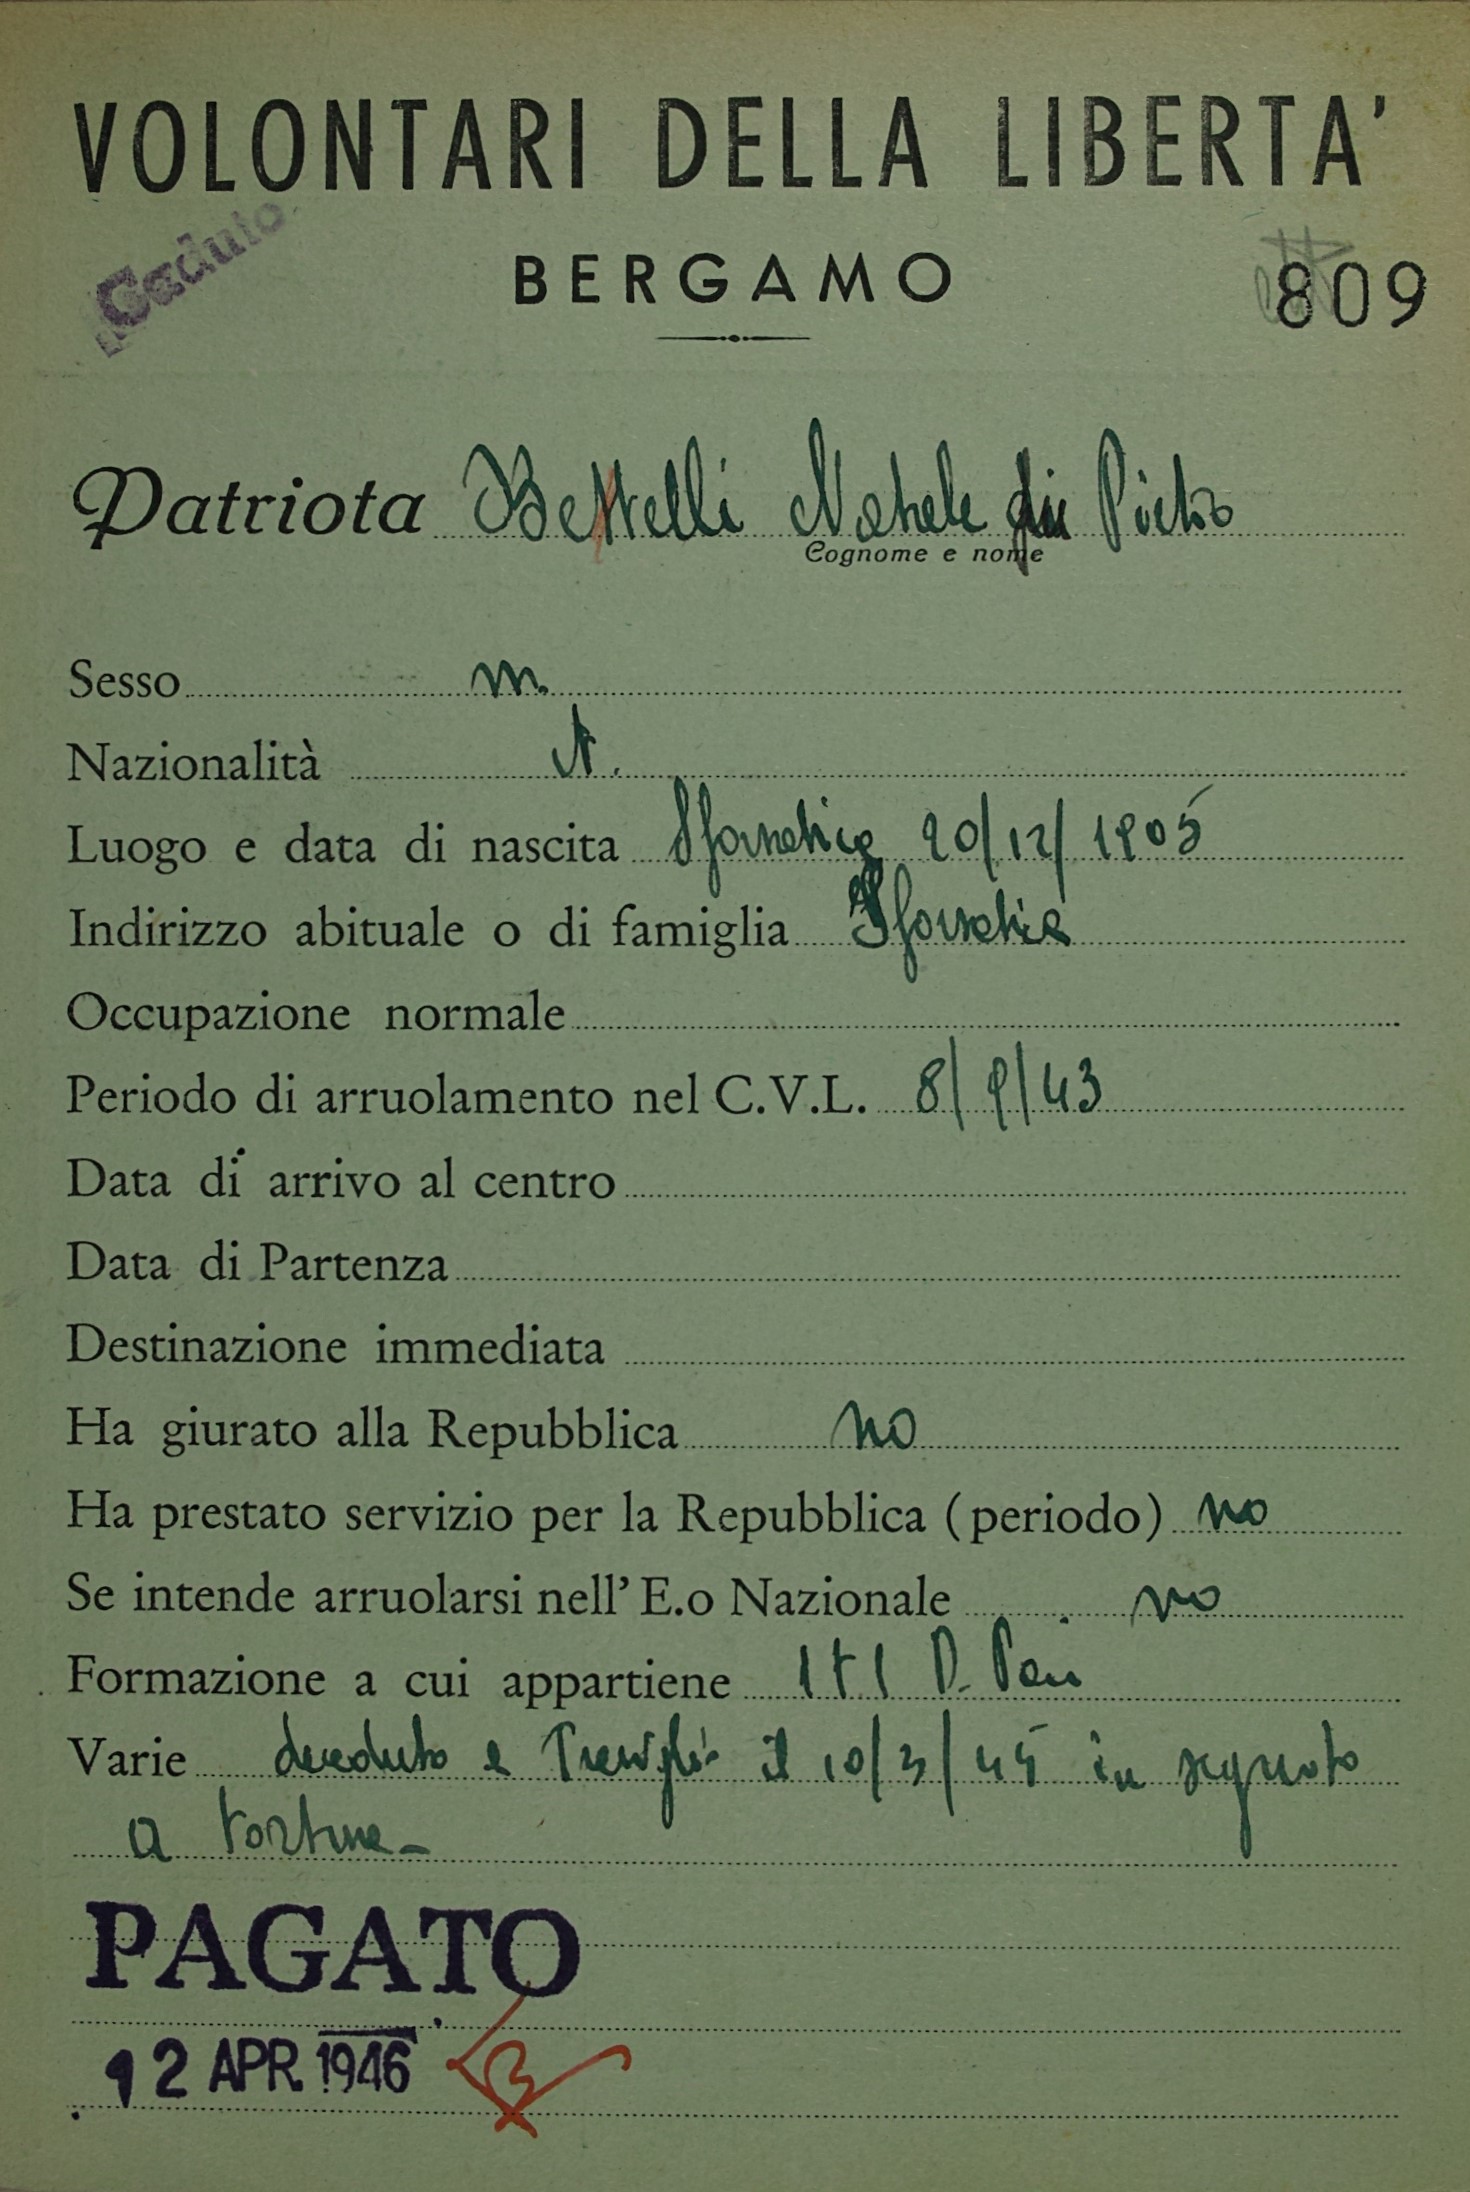 VOLONTARI DELLA LIBERTA'
"Caduto"
BERGAMO
809
Patriota Bettelli Natale Pietro
Cognome e nome
Sesso m.
Nazionalità
Luogo e data di nascita Sfornatica 20/12/1905
Indirizzo abituale o di famiglia Sfornatica
Occupazione normale
Periodo di arruolamento nel C.V.L. 8/9/43
Data di arrivo al centro
Data di Partenza
Destinazione immediata
Ha giurato alla Repubblica no
Ha prestato servizio per la Repubblica (periodo) no
Se intende arruolarsi nell' E.o Nazionale no
Formazione a cui appartiene 171 D.
Varie deceduto a Treviglio il 10/3/45 in seguito
a torture -
PAGATO
12 APR. 1946